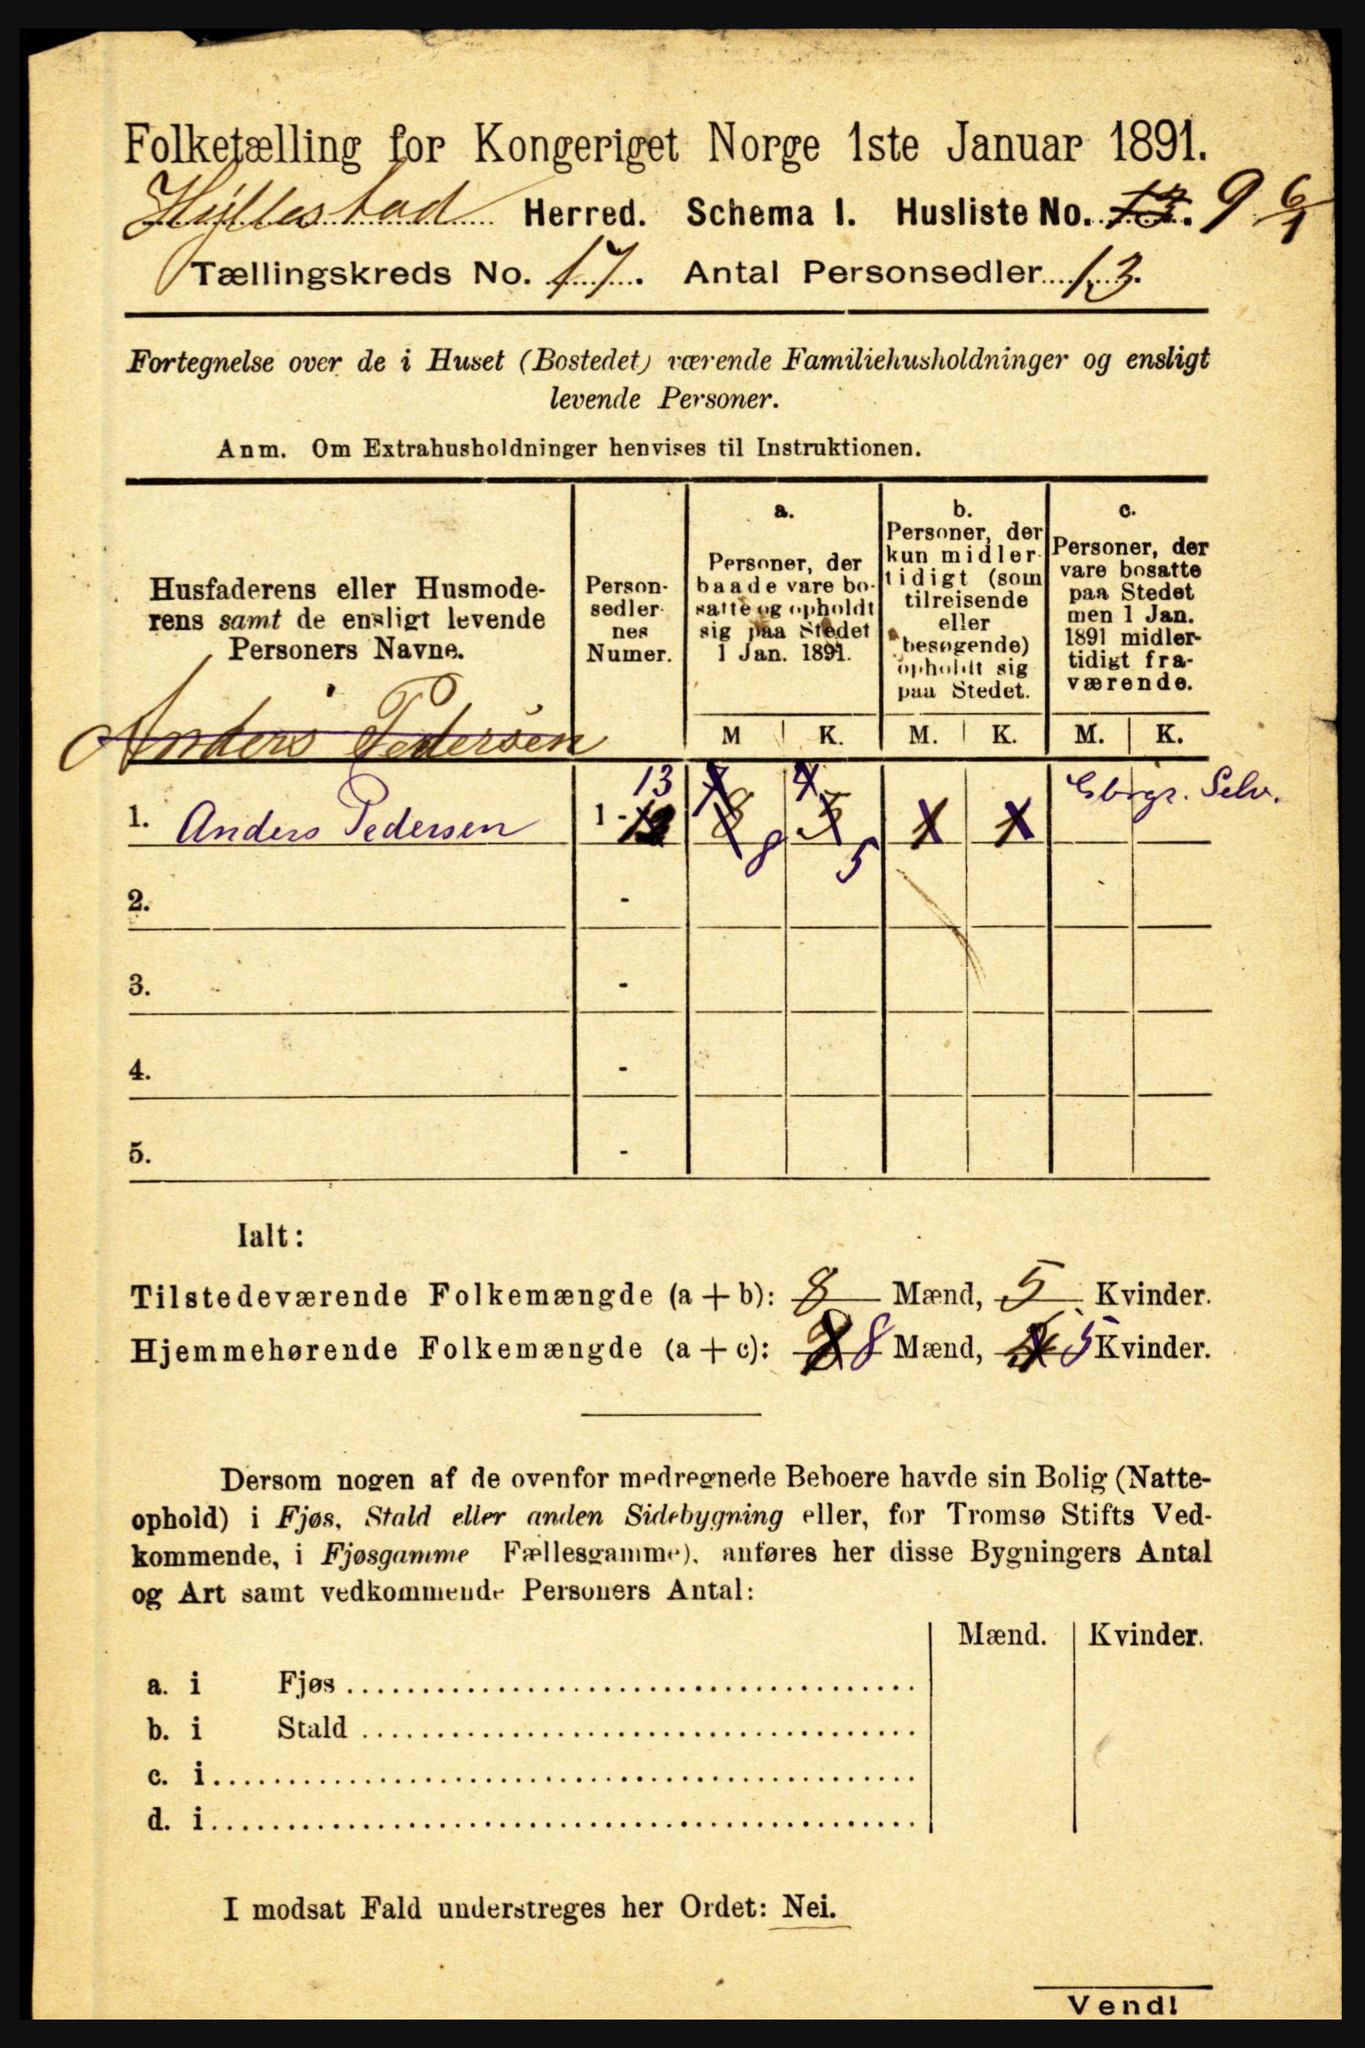 Folketælling for Kongeriget Norge 1ste Januar 1891.
Hyllestad Herred. Schema I. Husliste No. 13. 9
Tællingskreds No. 17. Antal Personsedler 13.
Fortegnelse over de i Huset (Bostedet) værende Familiehusholdninger og ensligt
levende Personer.
Anm. Om Extrahusholdninger henvises til Instruktionen.
Husfaderens eller Husmode-
rens samt de ensligt levende
Personers Navne.
Person-
sedler-
nes
Numer.
a.
Personer, der
baade vare bo-
satte og opholdt
sig paa Stedet
1 Jan. 1891.
b.
Personer, der
kun midler-
tidigt (som
tilreisende
eller
besøgende)
opholdt sig
paa Stedet.
c.
Personer, der
vare bosatte
paa Stedet
men 1 Jan.
1891 midler-
tidigt fra-
værende.
M K. M. K. M. K.
Anders Pedersen
1. Anders Pedersen 1 - 13 8 5 1 1
2. -
3. -
4. -
5. -
Ialt:
Tilstedeværende Folkemængde (a + b): 8 Mænd, 5 Kvinder.
Hjemmehørende Folkemængde (a + c): 8 Mænd, 5 Kvinder.
Dersom nogen af de ovenfor medregnede Beboere havde sin Bolig (Natte-
ophold) i Fjøs, Stald eller anden Sidebygning eller, for Tromsø Stifts Ved-
kommende, i Fjøsgamme Fællesgamme), anføres her disse Bygningers Antal
og Art samt vedkommende Personers Antal:
Mænd. Kvinder.
a. i Fjøs
b. i Stald
c. i
d. i
I modsat Fald understreges her Ordet: Nei.
Vend!